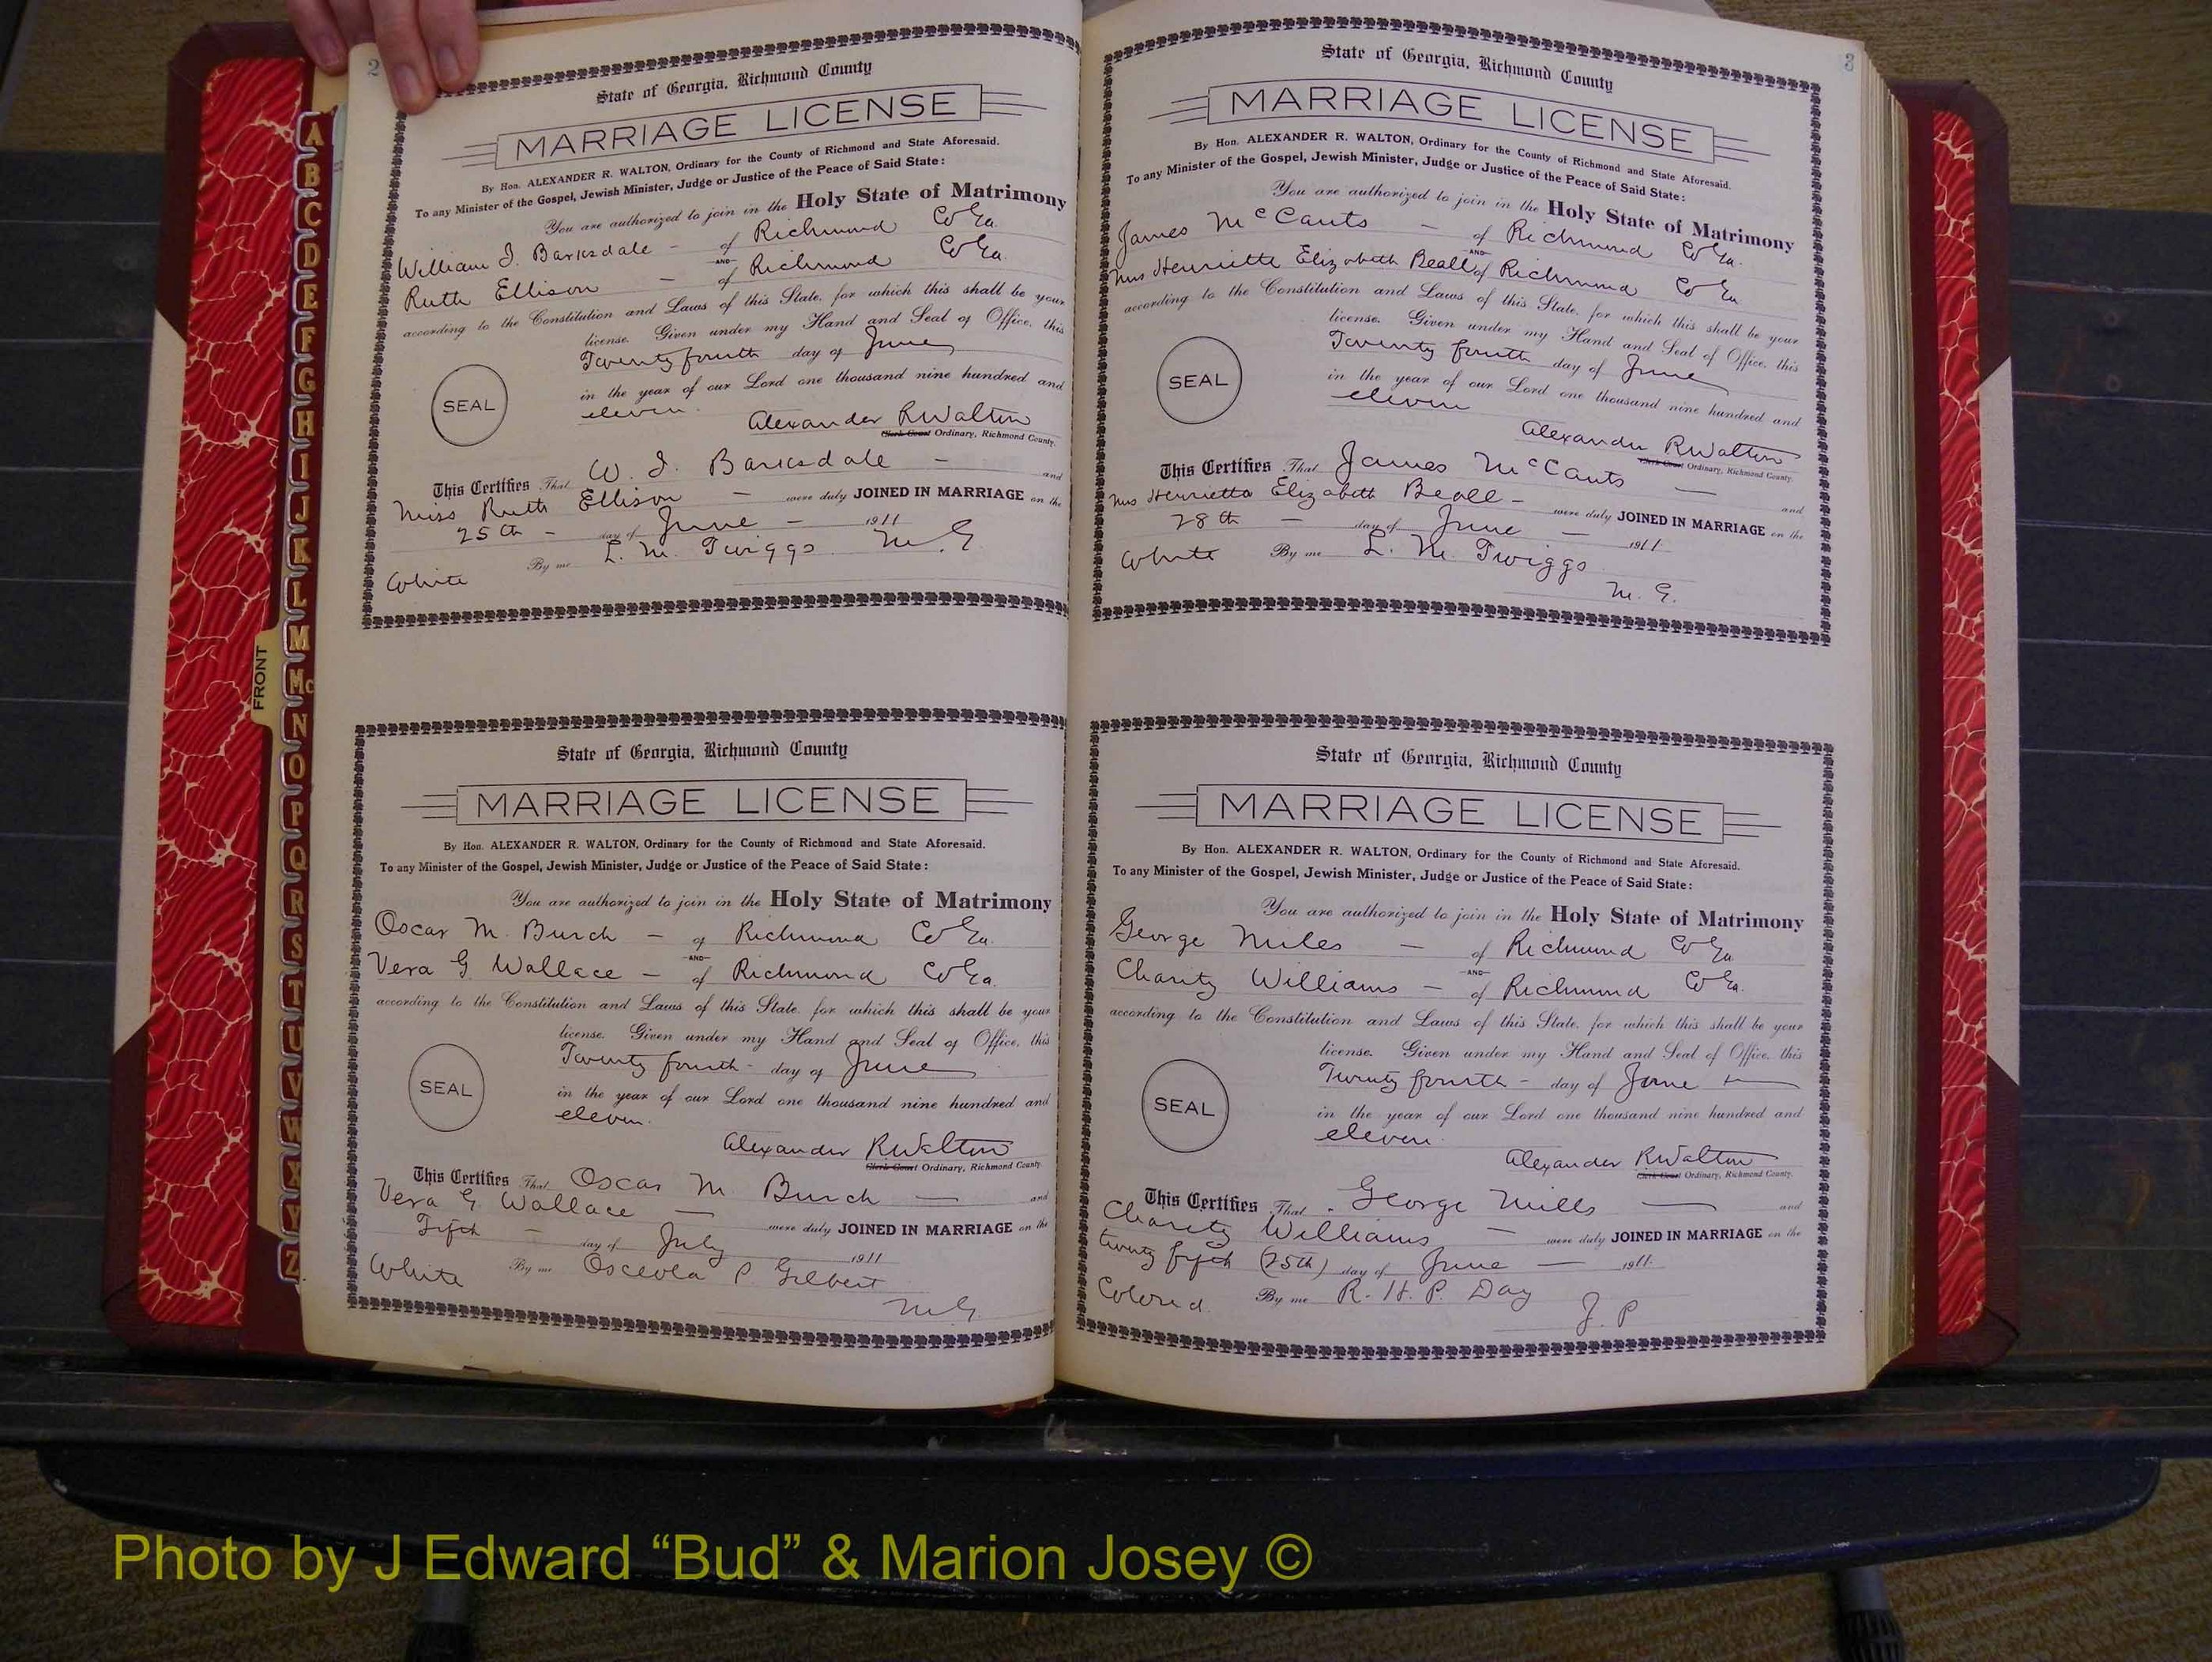 2
State of Georgia, Richmond County
MARRIAGE LICENSE
By Hon. ALEXANDER R. WALTON, Ordinary for the County of Richmond and State Aforesaid.
To any Minister of the Gospel, Jewish Minister, Judge or Justice of the Peace of Said State:
You are authorized to join in the Holy State of Matrimony
William J. Barksdale - of Richmond Co Ga.
AND
Ruth Ellison - of Richmond Co Ga.
according to the Constitution and Laws of this State, for which this shall be your
license. Given under my Hand and Seal of Office, this
Twenty fourth day of June
in the year of our Lord one thousand nine hundred and
SEAL
eleven.
Alexander R Walton
Clerk Court Ordinary, Richmond County.
This Certifies That W. J. Barksdale - and
Miss Ruth Ellison - were duly JOINED IN MARRIAGE on the
25th - day of June - 1911
By me L. M. Twiggs M. G.
White
State of Georgia, Richmond County
MARRIAGE LICENSE
By Hon. ALEXANDER R. WALTON, Ordinary for the County of Richmond and State Aforesaid.
To any Minister of the Gospel, Jewish Minister, Judge or Justice of the Peace of Said State:
You are authorized to join in the Holy State of Matrimony
Oscar M. Burch - of Richmond Co Ga.
AND
Vera G. Wallace - of Richmond Co Ga.
according to the Constitution and Laws of this State, for which this shall be your
license. Given under my Hand and Seal of Office, this
Twenty fourth - day of June
SEAL
in the year of our Lord one thousand nine hundred and
eleven.
Alexander R Walton
Clerk Court Ordinary, Richmond County
This Certifies That Oscar M. Burch - and
Vera G. Wallace - were duly JOINED IN MARRIAGE on the
Fifth - day of July 1911
White By me Osceola P. Gilbert
M.G.
3
State of Georgia, Richmond County
MARRIAGE LICENSE
By Hon. ALEXANDER R. WALTON, Ordinary for the County of Richmond and State Aforesaid.
To any Minister of the Gospel, Jewish Minister, Judge or Justice of the Peace of Said State:
You are authorized to join in the Holy State of Matrimony
James McCants - of Richmond Co Ga.
AND
Mrs Henrietta Elizabeth Beall of Richmond Co Ga
according to the Constitution and Laws of this State, for which this shall be your
license. Given under my Hand and Seal of Office, this
Twenty fourth day of June
SEAL
in the year of our Lord one thousand nine hundred and
eleven
Alexander R Walton
Clerk Court Ordinary, Richmond County.
This Certifies That James McCants - and
Mrs Henrietta Elizabeth Beall - were duly JOINED IN MARRIAGE on the
28th - day of June - 1911
White By me L. M. Twiggs
M. G.
State of Georgia, Richmond County
MARRIAGE LICENSE
By Hon. ALEXANDER R. WALTON, Ordinary for the County of Richmond and State Aforesaid.
To any Minister of the Gospel, Jewish Minister, Judge or Justice of the Peace of Said State:
You are authorized to join in the Holy State of Matrimony
George Miles - of Richmond Co Ga
AND
Charity Williams - of Richmond Co Ga.
according to the Constitution and Laws of this State, for which this shall be your
license. Given under my Hand and Seal of Office, this
Twenty fourth - day of June
SEAL
in the year of our Lord one thousand nine hundred and
eleven.
Alexander R Walton
Clerk Court Ordinary, Richmond County.
This Certifies That George Mills - and
Charity Williams - were duly JOINED IN MARRIAGE on the
twenty fifth (25th) day of June - 1911.
Colored. By me R. H. P. Day
J. P
FRONT
A
B
C
D
E
F
G
H
I
J
K
L
M
Mc
N
O
P
Q
R
S
T
U
V
W
X
Y
Z
Photo by J Edward “Bud” & Marion Josey ©